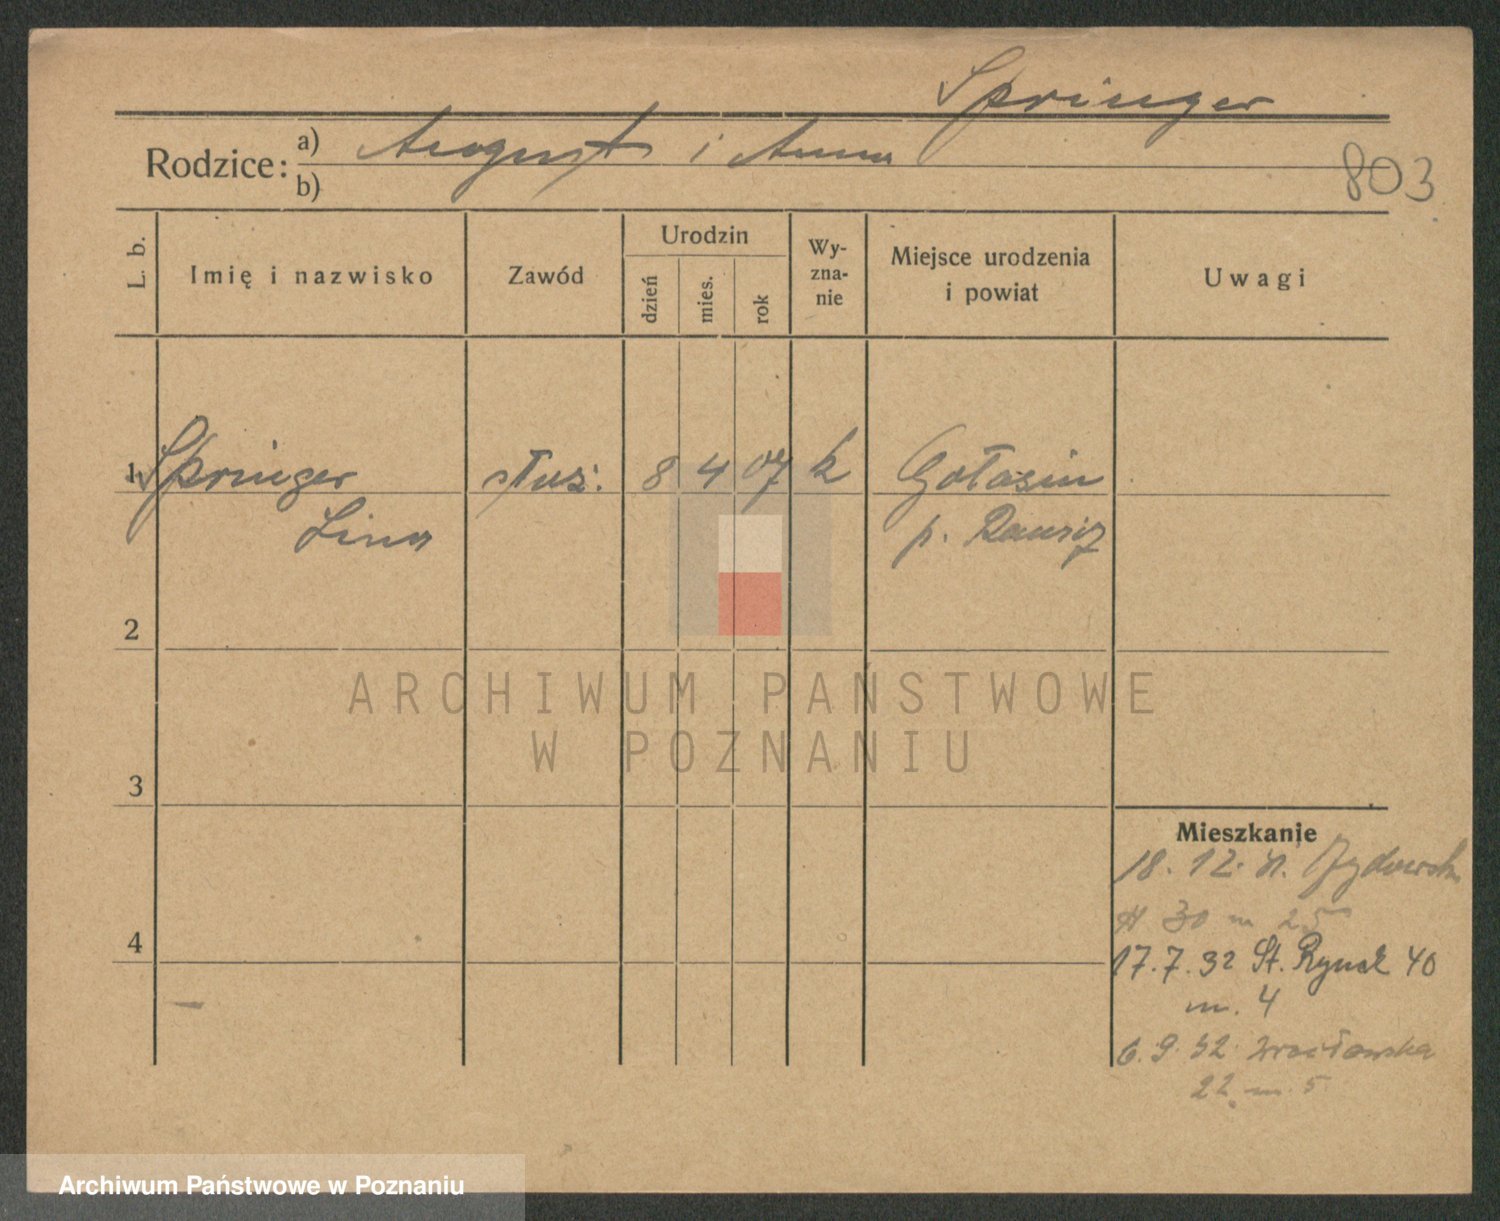 Springer
Rodzice:
a) August i Anna
b)
803
L. b.
Imię i nazwisko
Zawód
Urodzin
dzień
mies.
rok
Wy-
zna-
nie
Miejsce urodzenia
i powiat
Uwagi
1 Springer służ. 8 4 07 k Gołaszin
Lina p. Rawicz
2
3
4
Mieszkanie
18. 12.
30 m 25
17. 7. 32 St. Rynek 40
m. 4
6. 9. 32. Wrocławska
22 m. 5
ARCHIWUM PAŃSTWOWE
W POZNANIU
Archiwum Państwowe w Poznaniu